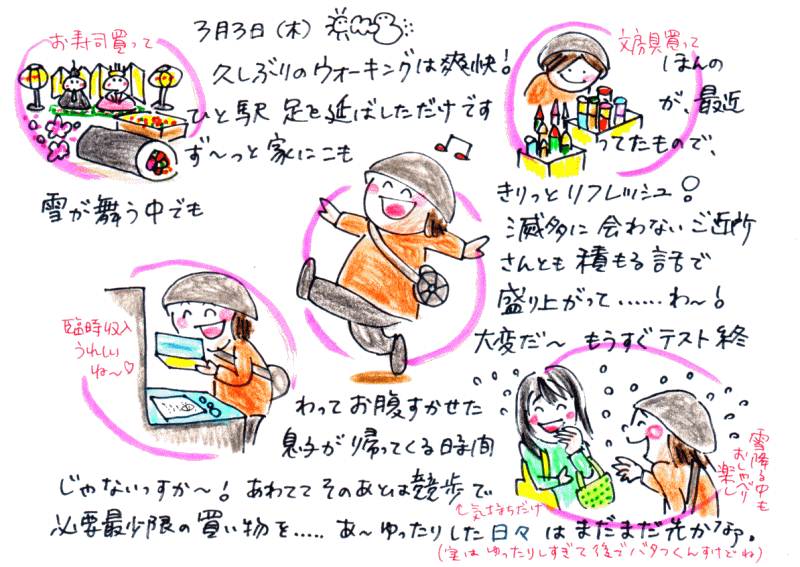 3月3日（木）
お寿司買って
文房具買って
久しぶりのウォーキングは爽快！ ほんの
ひと駅 足を延ばしただけです が、最近
ず～っと家にこも ってたもので、
雪が舞う中でも きりっとリフレッシュ！
滅多に会わないご近所
さんとも積もる話で
盛り上がって……わ～！
大変だ～ もうすぐテスト終
臨時収入
うれしい
ね～♡
わってお腹すかせた
息子が帰ってくる時間
雪降る中も
おしゃべり
楽し
じゃないっすか～！あわててそのあとは競歩で
↑気持ちだけ
必要最少限の買い物を…‥あ～ゆったりした日々はまだまだ先かなァ。
（実はゆったりしすぎて後でバタつくんすけどね）